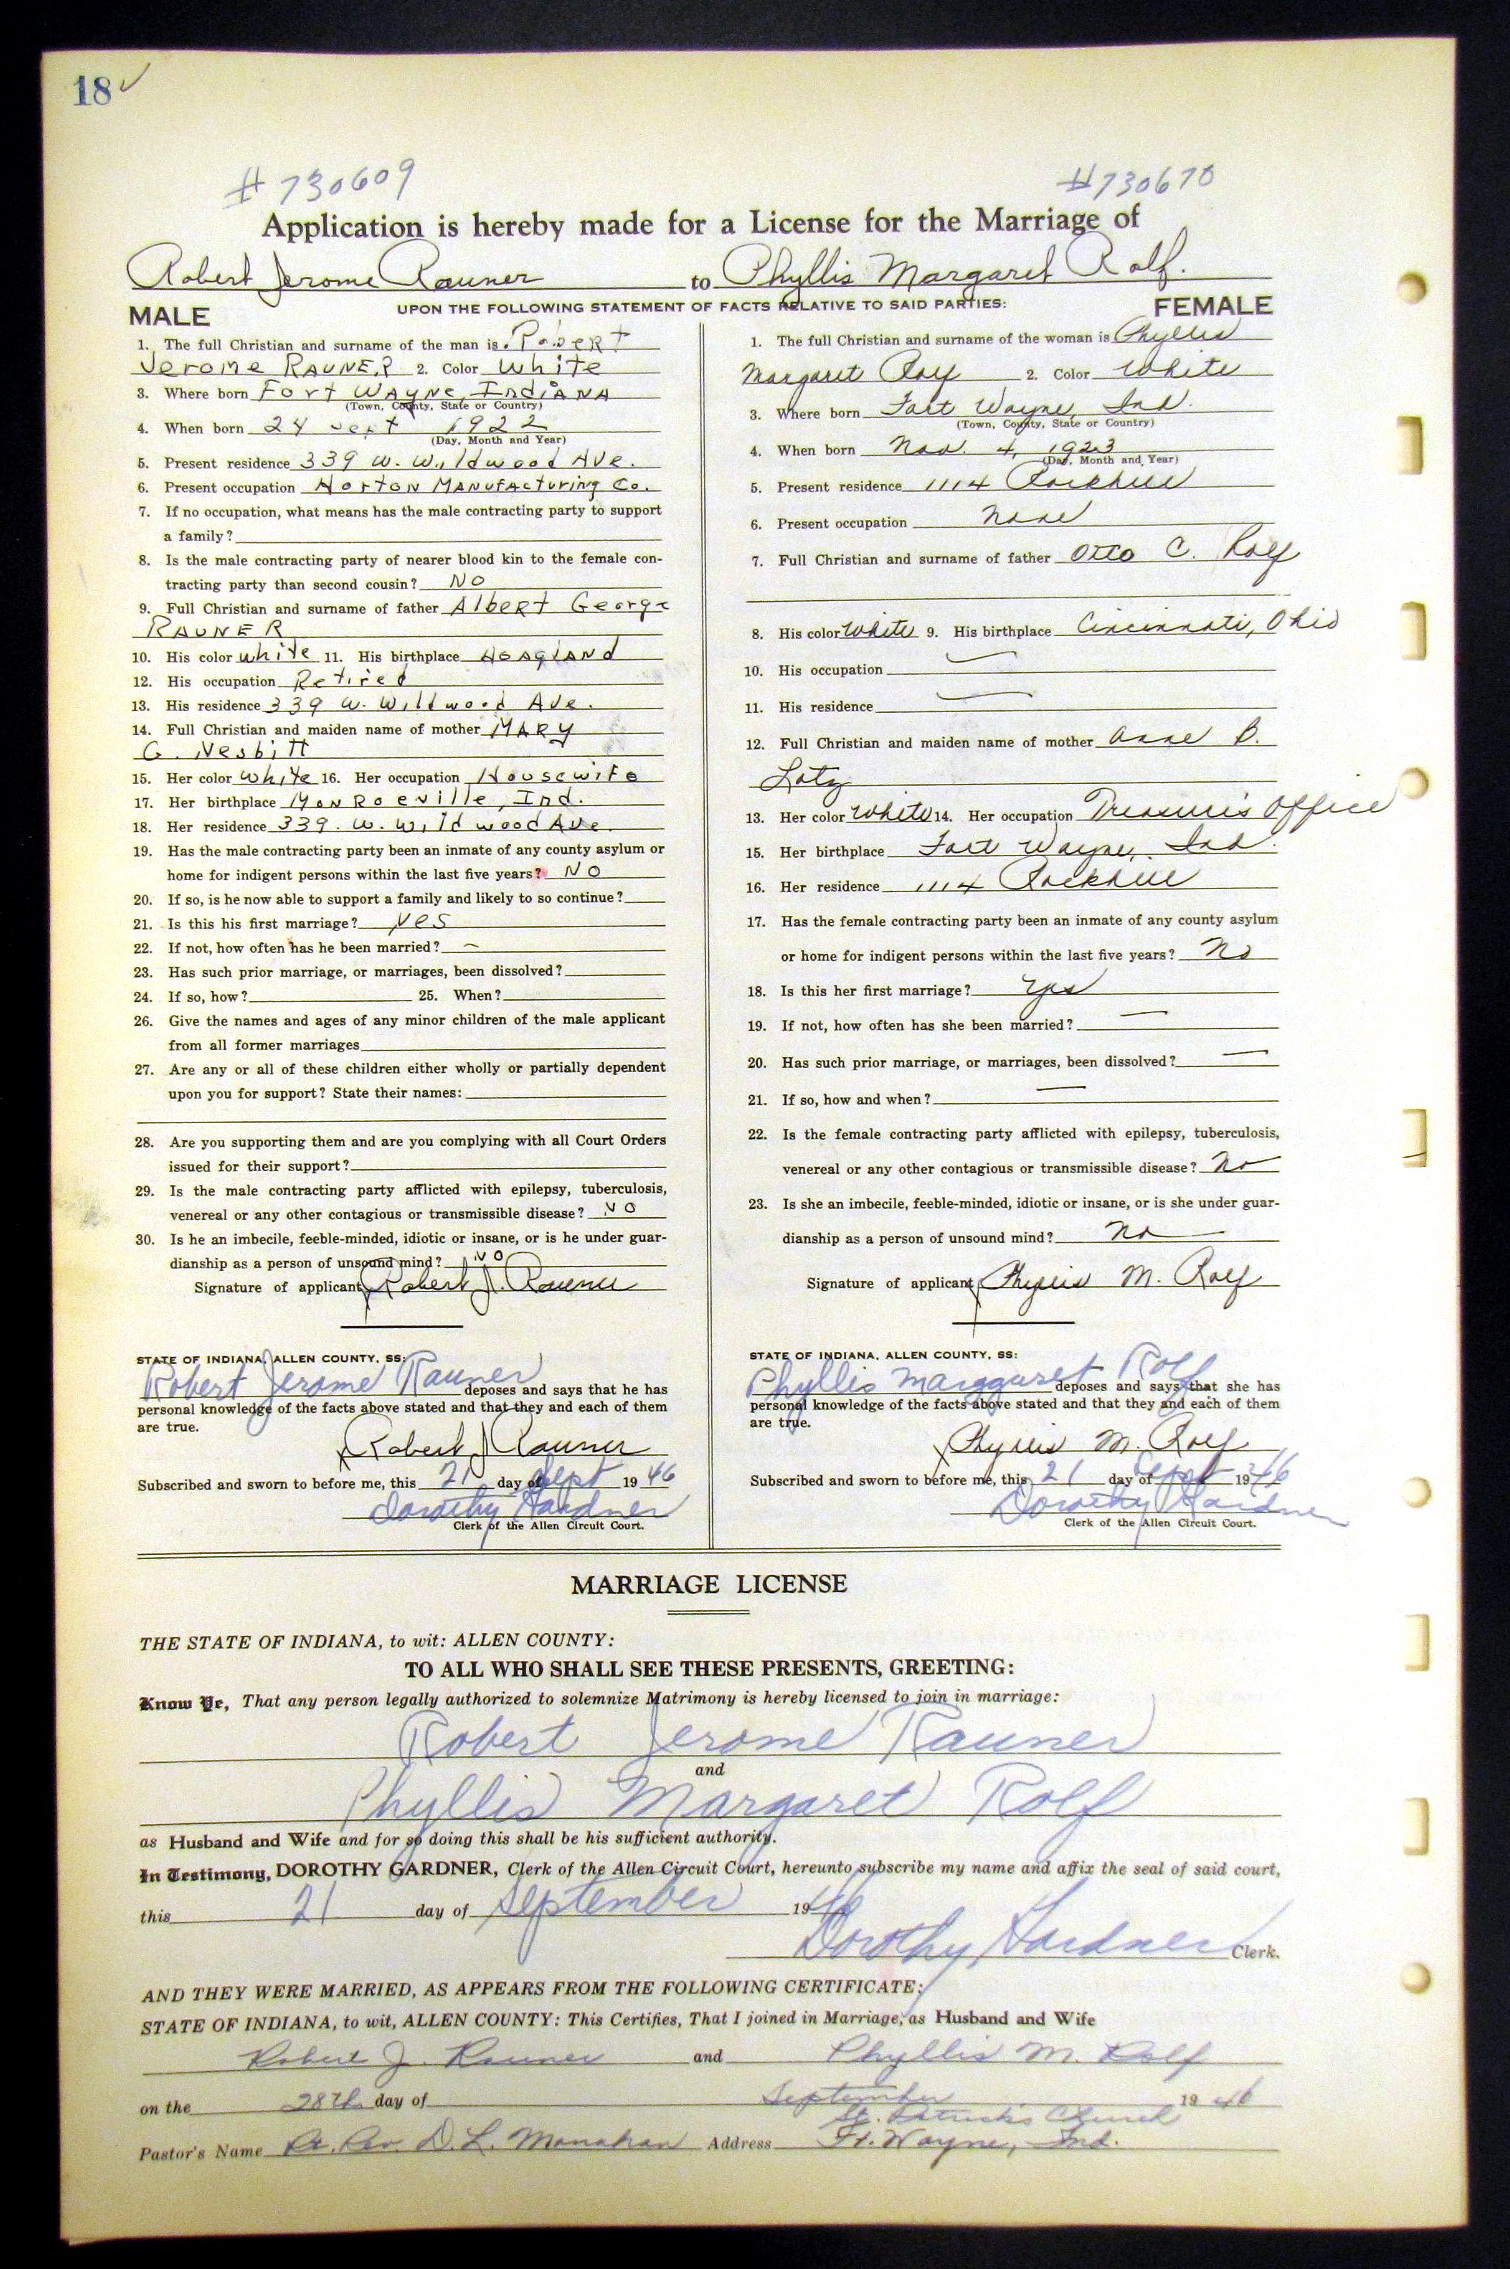 18 ✓
#730609 #730670
Application is hereby made for a License for the Marriage of
Robert Jerome Rauner to Phyllis Margaret Rolf.
UPON THE FOLLOWING STATEMENT OF FACTS RELATIVE TO SAID PARTIES:
MALE
1. The full Christian and surname of the man is Robert
Jerome RAUNER 2. Color white
3. Where born Fort WAYNE, INdiANA
(Town, County, State or Country)
4. When born 24 Sept 1922
(Day, Month and Year)
5. Present residence 339 W. Wildwood AVe.
6. Present occupation Horton MANufActuring Co.
7. If no occupation, what means has the male contracting party to support
a family?
8. Is the male contracting party of nearer blood kin to the female con-
tracting party than second cousin? NO
9. Full Christian and surname of father Albert George
RAUNER
10. His color white 11. His birthplace HOAglANd
12. His occupation Retired
13. His residence 339 W. Wildwood Ave.
14. Full Christian and maiden name of mother MARY
G. Nesbitt
15. Her color white 16. Her occupation Housewife
17. Her birthplace MonRoeville, Ind.
18. Her residence 339. W. Wildwood Ave.
19. Has the male contracting party been an inmate of any county asylum or
home for indigent persons within the last five years? NO
20. If so, is he now able to support a family and likely to so continue?
21. Is this his first marriage? yes
22. If not, how often has he been married? —
23. Has such prior marriage, or marriages, been dissolved?
24. If so, how? 25. When?
26. Give the names and ages of any minor children of the male applicant
from all former marriages
27. Are any or all of these children either wholly or partially dependent
upon you for support? State their names:
28. Are you supporting them and are you complying with all Court Orders
issued for their support?
29. Is the male contracting party afflicted with epilepsy, tuberculosis,
venereal or any other contagious or transmissible disease? NO
30. Is he an imbecile, feeble-minded, idiotic or insane, or is he under guar-
dianship as a person of unsound mind? NO
Signature of applicant Robert J. Rauner
STATE OF INDIANA, ALLEN COUNTY, SS:
Robert Jerome Rauner deposes and says that he has
personal knowledge of the facts above stated and that they and each of them
are true.
Robert J Rauner
Subscribed and sworn to before me, this 21 day of Sept 1946
Dorothy Gardner
Clerk of the Allen Circuit Court.
FEMALE
1. The full Christian and surname of the woman is Phyllis
Margaret Rolf 2. Color White
3. Where born Fort Wayne, Ind.
(Town, County, State or Country)
4. When born Nov. 4, 1923
(Day, Month and Year)
5. Present residence 1114 Rockhill
6. Present occupation None
7. Full Christian and surname of father Otto C. Rolf
8. His color White 9. His birthplace Cincinnati, Ohio
10. His occupation —
11. His residence —
12. Full Christian and maiden name of mother Anne B.
Lotz
13. Her color White 14. Her occupation Treasurer's Office
15. Her birthplace Fort Wayne, Ind.
16. Her residence 1114 Rockhill
17. Has the female contracting party been an inmate of any county asylum
or home for indigent persons within the last five years? No
18. Is this her first marriage? Yes
19. If not, how often has she been married? —
20. Has such prior marriage, or marriages, been dissolved? —
21. If so, how and when? —
22. Is the female contracting party afflicted with epilepsy, tuberculosis,
venereal or any other contagious or transmissible disease? No
23. Is she an imbecile, feeble-minded, idiotic or insane, or is she under guar-
dianship as a person of unsound mind? No
Signature of applicant Phyllis M. Rolf
STATE OF INDIANA, ALLEN COUNTY, SS:
Phyllis Marggaret Rolf deposes and says that she has
personal knowledge of the facts above stated and that they and each of them
are true.
Phyllis M. Rolf
Subscribed and sworn to before me, this 21 day of Sept 1946
Dorothy Gardner
Clerk of the Allen Circuit Court.
MARRIAGE LICENSE
THE STATE OF INDIANA, to wit: ALLEN COUNTY:
TO ALL WHO SHALL SEE THESE PRESENTS, GREETING:
Know Ye, That any person legally authorized to solemnize Matrimony is hereby licensed to join in marriage:
Robert Jerome Rauner
and
Phyllis Margaret Rolf
as Husband and Wife and for so doing this shall be his sufficient authority.
In Testimony, DOROTHY GARDNER, Clerk of the Allen Circuit Court, hereunto subscribe my name and affix the seal of said court,
this 21 day of September 1946
Dorothy Gardner Clerk.
AND THEY WERE MARRIED, AS APPEARS FROM THE FOLLOWING CERTIFICATE:
STATE OF INDIANA, to wit, ALLEN COUNTY: This Certifies, That I joined in Marriage, as Husband and Wife
Robert J. Rauner and Phyllis M. Rolf
on the 28th day of September 1946
St. Patrick's Church
Pastor's Name Rt. Rev. D. L. Monahan Address Ft. Wayne, Ind.